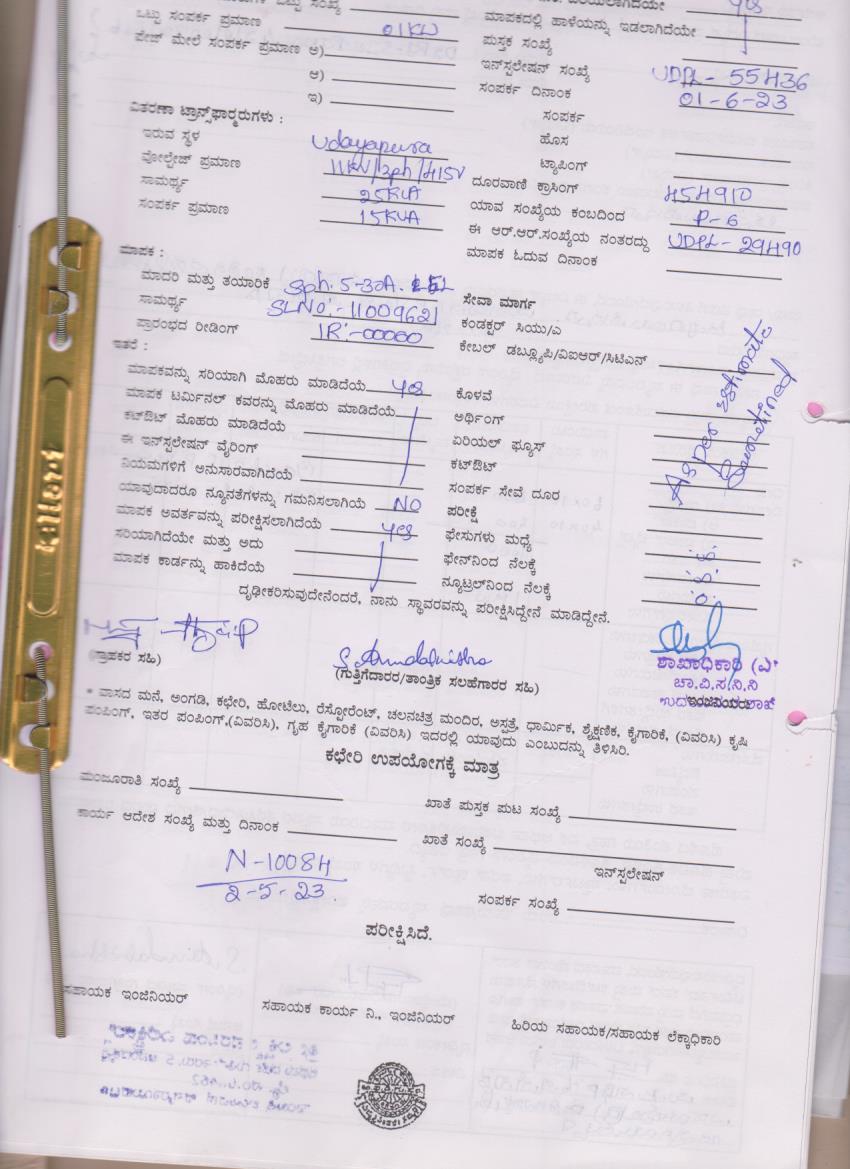 ಒಟ್ಟು ಸಂಖ್ಯೆ
ಒಟ್ಟು ಸಂಪರ್ಕ ಪ್ರಮಾಣ 01KW
ಪೇಜ್ ಮೇಲೆ ಸಂಪರ್ಕ ಪ್ರಮಾಣ ಅ)
ಆ)
ಇ)
ವಿತರಣಾ ಟ್ರಾನ್ಸ್‌ಫಾರ್ಮರುಗಳು :
ಇರುವ ಸ್ಥಳ Udayapura
ವೋಲ್ಟೇಜ್ ಪ್ರಮಾಣ 11KV/3ph/415V
ಸಾಮರ್ಥ್ಯ 25KVA
ಸಂಪರ್ಕ ಪ್ರಮಾಣ 15KVA
ಮಾಪಕ :
ಮಾದರಿ ಮತ್ತು ತಯಾರಿಕೆ Sph. 5-30A.
ಸಾಮರ್ಥ್ಯ SLNO:-11009621
ಪ್ರಾರಂಭದ ರೀಡಿಂಗ್ IR:-00000
ಇತರೆ :
ಮಾಪಕವನ್ನು ಸರಿಯಾಗಿ ಮೊಹರು ಮಾಡಿದೆಯೆ yes
ಮಾಪಕ ಟರ್ಮಿನಲ್ ಕವರನ್ನು ಮೊಹರು ಮಾಡಿದೆಯೆ
ಕಟ್‌ಔಟ್ ಮೊಹರು ಮಾಡಿದೆಯೆ
ಈ ಇನ್‌ಸ್ಟಲೇಷನ್ ವೈರಿಂಗ್
ನಿಯಮಗಳಿಗೆ ಅನುಸಾರವಾಗಿದೆಯೆ
ಯಾವುದಾದರೂ ನ್ಯೂನತೆಗಳನ್ನು ಗಮನಿಸಲಾಗಿಯೆ NO
ಮಾಪಕ ಅವರ್ತವನ್ನು ಪರೀಕ್ಷಿಸಲಾಗಿದೆಯೆ yes
ಸರಿಯಾಗಿದೆಯೇ ಮತ್ತು ಅದು
ಮಾಪಕ ಕಾರ್ಡನ್ನು ಹಾಕಿದೆಯೆ
yes
ಮಾಪಕದಲ್ಲಿ ಹಾಳೆಯನ್ನು ಇಡಲಾಗಿದೆಯೇ
ಪುಸ್ತಕ ಸಂಖ್ಯೆ
ಇನ್‌ಸ್ಟಲೇಷನ್ ಸಂಖ್ಯೆ UDPL-55436
ಸಂಪರ್ಕ ದಿನಾಂಕ 01-6-23
ಸಂಪರ್ಕ
ಹೊಸ
ಟ್ಯಾಪಿಂಗ್
ದೂರವಾಣಿ ಕ್ರಾಸಿಂಗ್ 454910
ಯಾವ ಸಂಖ್ಯೆಯ ಕಂಬದಿಂದ P-6
ಈ ಆರ್.ಆರ್.ಸಂಖ್ಯೆಯ ನಂತರದ್ದು UDPL-29490
ಮಾಪಕ ಓದುವ ದಿನಾಂಕ
ಸೇವಾ ಮಾರ್ಗ
ಕಂಡಕ್ಟರ್ ಸಿಯು/ಎ
ಕೇಬಲ್ ಡಬ್ಲ್ಯೂಪಿ/ವಿಐಆರ್/ಸಿಟಿಎನ್
ಕೊಳವೆ
ಅರ್ಥಿಂಗ್
ಏರಿಯಲ್ ಫ್ಯೂಸ್
ಕಟ್‌ಔಟ್
ಸಂಪರ್ಕ ಸೇವೆ ದೂರ
ಪರೀಕ್ಷೆ
ಫೇಸುಗಳು ಮಧ್ಯೆ
ಫೇನ್‌ನಿಂದ ನೆಲಕ್ಕೆ
ನ್ಯೂಟ್ರಲ್‌ನಿಂದ ನೆಲಕ್ಕೆ
As per estimate
Sanctioned
ದೃಢೀಕರಿಸುವುದೇನೆಂದರೆ, ನಾನು ಸ್ಥಾವರವನ್ನು ಪರೀಕ್ಷಿಸಿದ್ದೇನೆ ಮಾಡಿದ್ದೇನೆ.
(ಗ್ರಾಪಕರ ಸಹಿ)
(ಗುತ್ತಿಗೆದಾರರ/ತಾಂತ್ರಿಕ ಸಲಹೆಗಾರರ ಸಹಿ)
ಶಾಖಾಧಿಕಾರಿ (ವಿ)
ಚಾ.ವಿ.ಸ.ನಿ.ನಿ
* ವಾಸದ ಮನೆ, ಅಂಗಡಿ, ಕಛೇರಿ, ಹೋಟೆಲು, ರೆಸ್ಟೋರೆಂಟ್, ಚಲನಚಿತ್ರ ಮಂದಿರ, ಅಸ್ಪತ್ರೆ, ಧಾರ್ಮಿಕ, ಶೈಕ್ಷಣಿಕ, ಕೈಗಾರಿಕೆ, (ವಿವರಿಸಿ) ಕೃಷಿ
ಪಂಪಿಂಗ್, ಇತರ ಪಂಪಿಂಗ್,(ವಿವರಿಸಿ), ಗೃಹ ಕೈಗಾರಿಕೆ (ವಿವರಿಸಿ) ಇದರಲ್ಲಿ ಯಾವುದು ಎಂಬುದನ್ನು ತಿಳಿಸಿರಿ.
ಕಛೇರಿ ಉಪಯೋಗಕ್ಕೆ ಮಾತ್ರ
ಮಂಜೂರಾತಿ ಸಂಖ್ಯೆ
ಖಾತೆ ಪುಸ್ತಕ ಪುಟ ಸಂಖ್ಯೆ
ಕಾರ್ಯ ಆದೇಶ ಸಂಖ್ಯೆ ಮತ್ತು ದಿನಾಂಕ
ಖಾತೆ ಸಂಖ್ಯೆ
N-10084
2-5-23
ಇನ್‌ಸ್ಟಲೇಷನ್
ಸಂಪರ್ಕ ಸಂಖ್ಯೆ
ಪರೀಕ್ಷಿಸಿದೆ.
ಸಹಾಯಕ ಇಂಜಿನಿಯರ್
ಸಹಾಯಕ ಕಾರ್ಯ ನಿ., ಇಂಜಿನಿಯರ್
ಹಿರಿಯ ಸಹಾಯಕ/ಸಹಾಯಕ ಲೆಕ್ಕಾಧಿಕಾರಿ